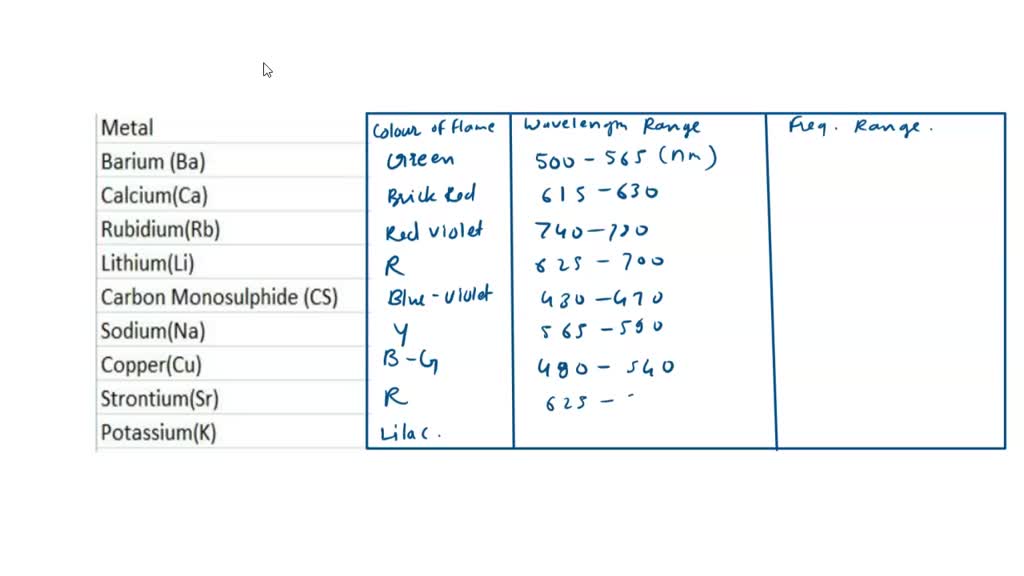 Metal Colour of Flame Wavelength Range Freq. Range.
Barium (Ba) Green 500 - 565 (nm)
Calcium(Ca) Brick Red 615 - 630
Rubidium(Rb) Red violet 740 -
Lithium(Li) R 625 - 700
Carbon Monosulphide (CS) Blue - violet 430 - 470
Sodium(Na) Y 565 - 590
Copper(Cu) B - G 480 - 540
Strontium(Sr) R 625 -
Potassium(K) Lilac.